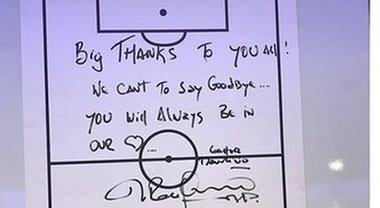 Big THANKS To you All!
WE CAN'T To SAy GOODBYE....
you Will Always BE in
OUR ♡....